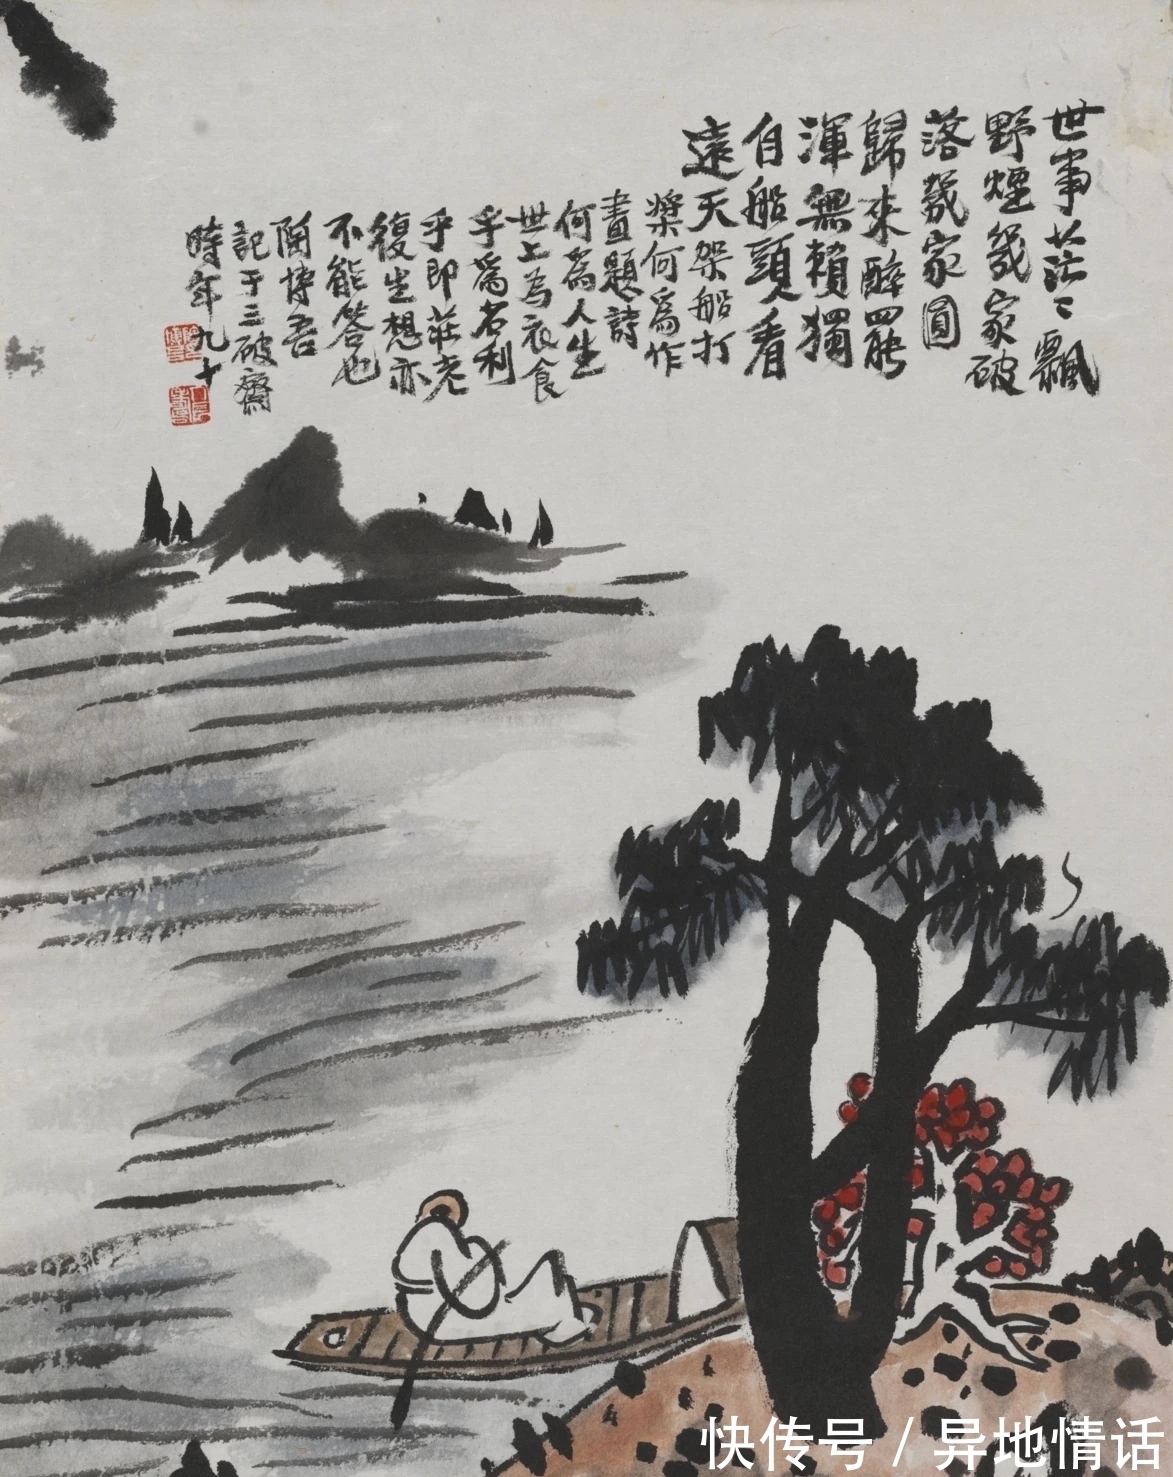 世事茫〻飄
野煙幾家破
落幾家圓
歸來醉罷
渾無賴獨
自船頭看
遠天架船打
槳何為作
畫題詩
何為人生
世上為衣食
乎為名利
乎即莊老
復生想亦
不能答也
陶博吾
記于三破齋
時年九十
快传号 / 异地情话